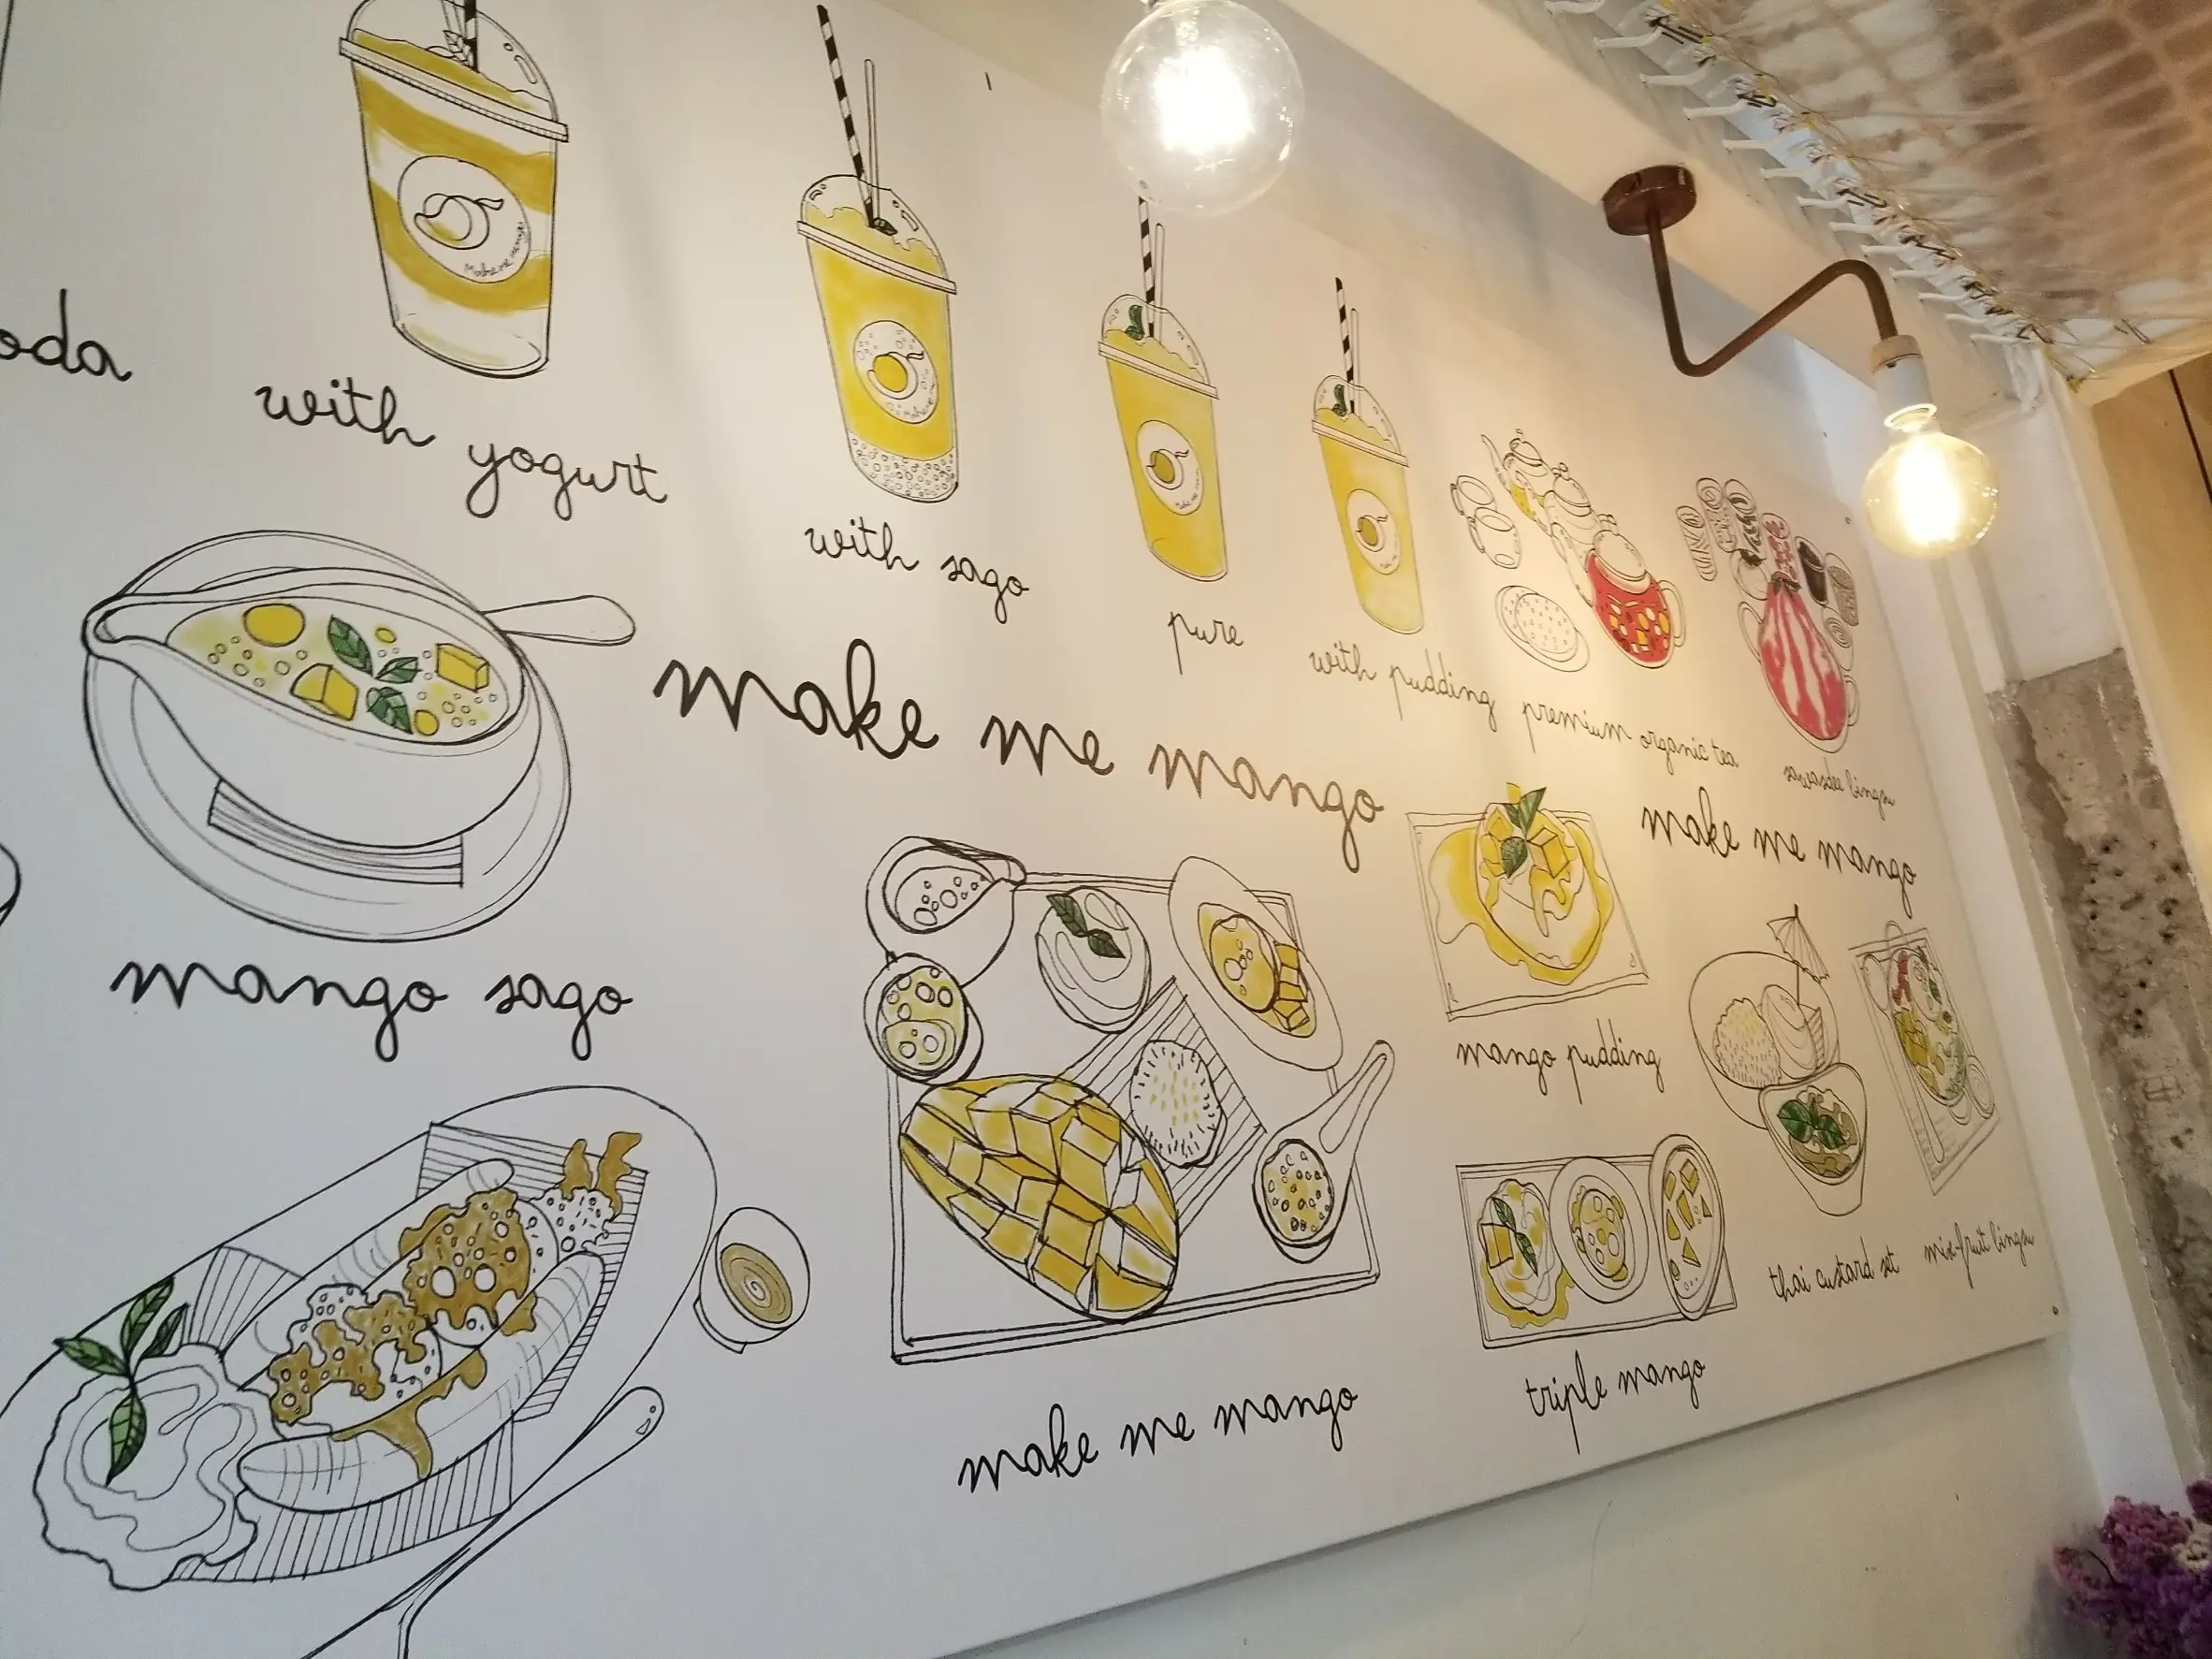 oda
with yogurt
with sago
pure
with pudding
premium organic tea
sawasdee bingsu
make me mango
make me mango
mango sago
mango pudding
thai custard set
mix-fruit bingsu
make me mango
triple mango